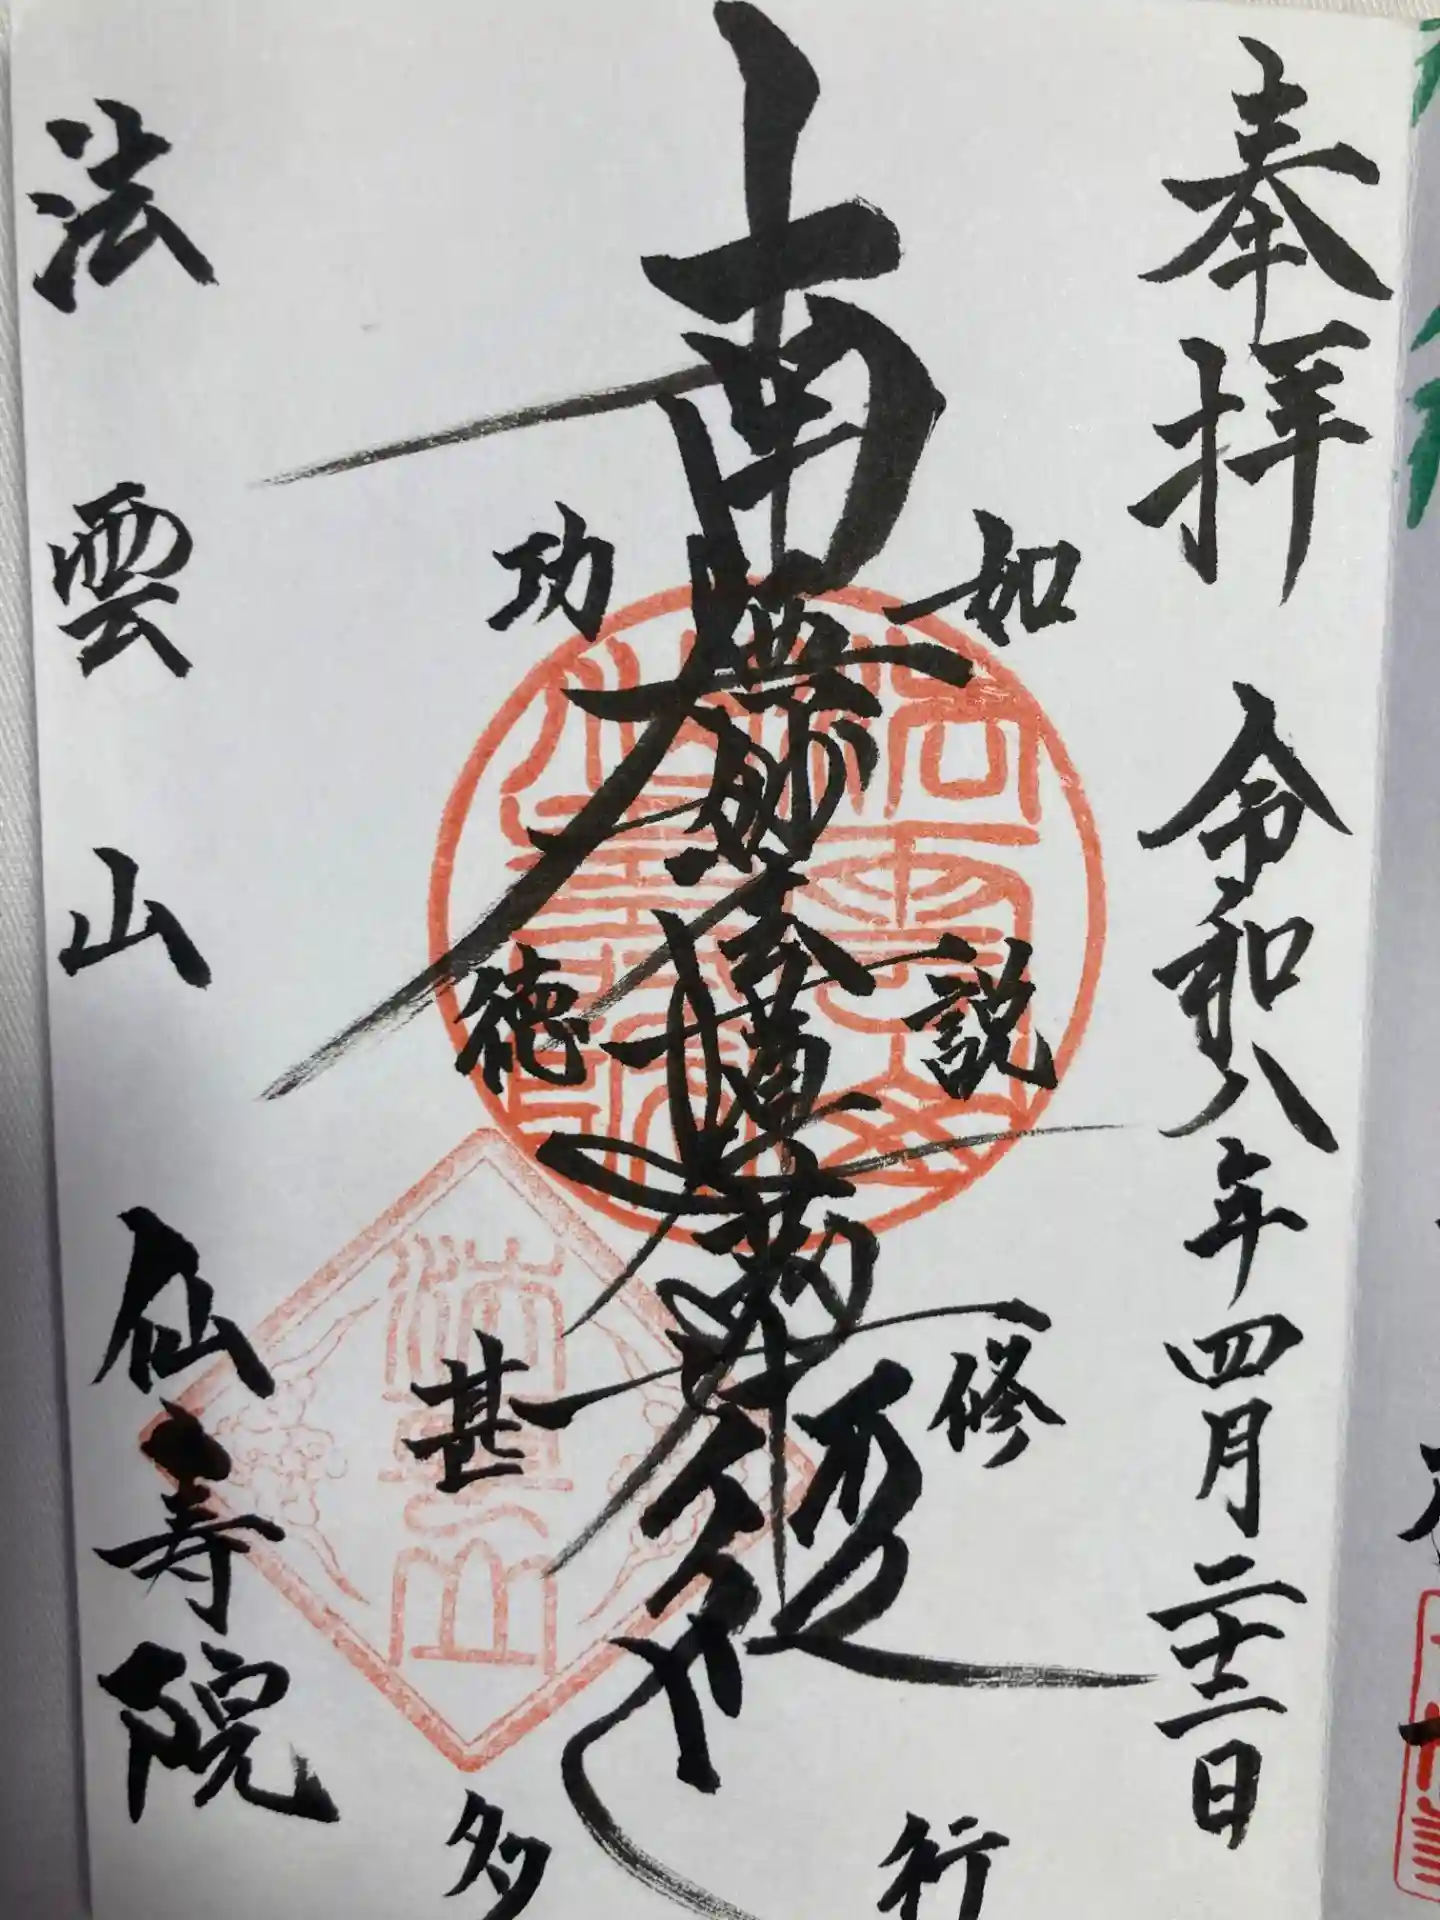 奉拝 令和八年四月二十二日
如説修行
南無妙法蓮華経
功徳甚多
法雲山 仙寿院